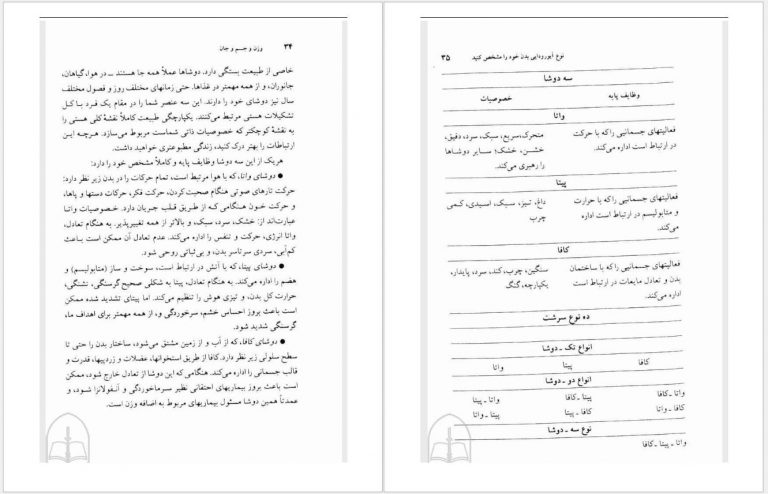 ۳۴ وزن و جسم و جان
خاصی از طبیعت بستگی دارد. دوشاها عملاً همه جا هستند ـ در هوا، گیاهان،
جانوران، و از همه مهمتر در غذاها. حتی زمانهای مختلف روز و فصول مختلف
سال نیز دوشای خود را دارند. این سه عنصر شما را در مقام یک فرد با کل
تشکیلات هستی مرتبط می‌کنند. یکپارچگی طبیعت کاملاً نقشهٔ کلی هستی را
به نقشهٔ کوچکتر که خصوصیات ذاتی شماست مربوط می‌سازد. هرچه این
ارتباطات را بهتر درک کنید، زندگی مطبوعتری خواهید داشت.
هریک از این سه دوشا وظایف پایه و کاملاً مشخص خود را دارد:
● دوشای واتا، که با هوا مرتبط است، تمام حرکات را در بدن زیر نظر دارد:
حرکت تارهای صوتی هنگام صحبت کردن، حرکت فکر، حرکات دستها و پاها،
و حرکت خون هنگامی که از طریق قلب جریان دارد. خصوصیات واتا
عبارت‌اند از: خشک، سرد، سبک، و بالاتر از همه تغییرپذیر. به هنگام تعادل،
واتا انرژی، حرکت و تنفس را اداره می‌کند. عدم تعادل آن ممکن است باعث
کم‌آبی، سردی سرتاسر بدن، و بی‌ثباتی روحی شود.
● دوشای پیتا، که با آتش در ارتباط است، سوخت و ساز (متابولیسم) و
هضم را اداره می‌کند. به هنگام تعادل، پیتا به شکلی صحیح گرسنگی، تشنگی،
حرارت کل بدن، و تیزی هوش را تنظیم می‌کند. اما پیتای تشدید شده ممکن
است باعث بروز احساس خشم، سرخوردگی و، از همه مهمتر برای اهداف ما،
گرسنگی شدید شود.
● دوشای کافا، که از آب و از زمین مشتق می‌شود، ساختار بدن را حتی تا
سطح سلولی زیر نظر دارد. کافا از طریق استخوانها، عضلات و زردپیها، قدرت و
قالب جسمانی را اداره می‌کند. هنگامی که این دوشا از تعادل خارج شود، ممکن
است باعث بروز بیماریهای احتقانی نظیر سرماخوردگی و آنفولانزا شود، و
عمدتاً همین دوشا مسئول بیماریهای مربوط به اضافه وزن است.
نوع آیورودایی بدن خود را مشخص کنید ۳۵
سه دوشا
وظایف پایه خصوصیات
واتا
فعالیتهای جسمانیی را که با حرکت متحرک، سریع، سبک، سرد، دقیق،
در ارتباط است اداره می‌کند. خشن، خشک؛ سایر دوشاها
را رهبری می‌کند.
پیتا
فعالیتهای جسمانیی را که با حرارت داغ، تیز، سبک، اسیدی، کمی
و متابولیسم در ارتباط است اداره چرب
می‌کند.
کافا
فعالیتهای جسمانیی را که با ساختمان سنگین، چرب، کند، سرد، پایدار،
بدن و تعادل مایعات در ارتباط است یکپارچه، گنگ
اداره می‌کند.
ده نوع سرشت
انواع تک ـ دوشا
کافا پیتا واتا
انواع دو ـ دوشا
واتا ـ کافا پیتا ـ کافا واتا ـ پیتا
کافا ـ واتا کافا ـ پیتا پیتا ـ واتا
نوع سه ـ دوشا
واتا ـ پیتا ـ کافا